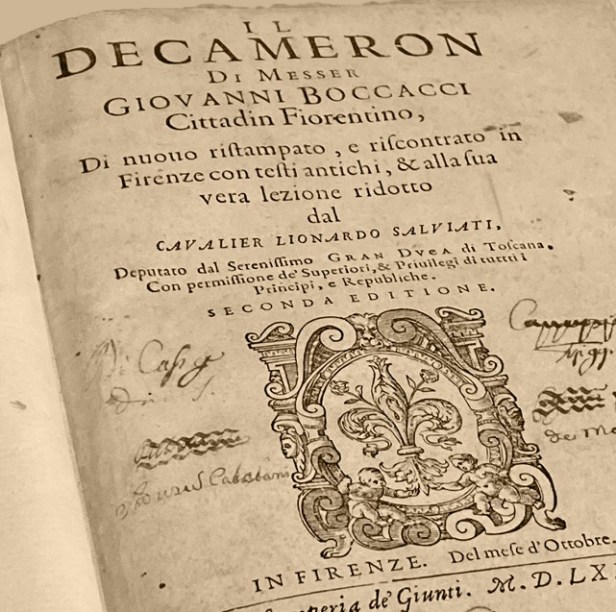 IL
DECAMERON
DI MESSER
GIOVANNI BOCCACCI
Cittadin Fiorentino,
Di nuouo riſtampato, e riſcontrato in
Firenze con teſti antichi, & alla ſua
vera lezione ridotto
dal
CAVALIER LIONARDO SALVIATI,
Deputato dal Sereniſſimo GRAN DVCA di Toſcana.
Con permiſſione de' Superiori, & Priuilegi di tutti i
Principi, e Republiche.
SECONDA EDITIONE.
de
IN FIRENZE. Del meſe d'Ottobre.
de' Giunti. M. D. LXX